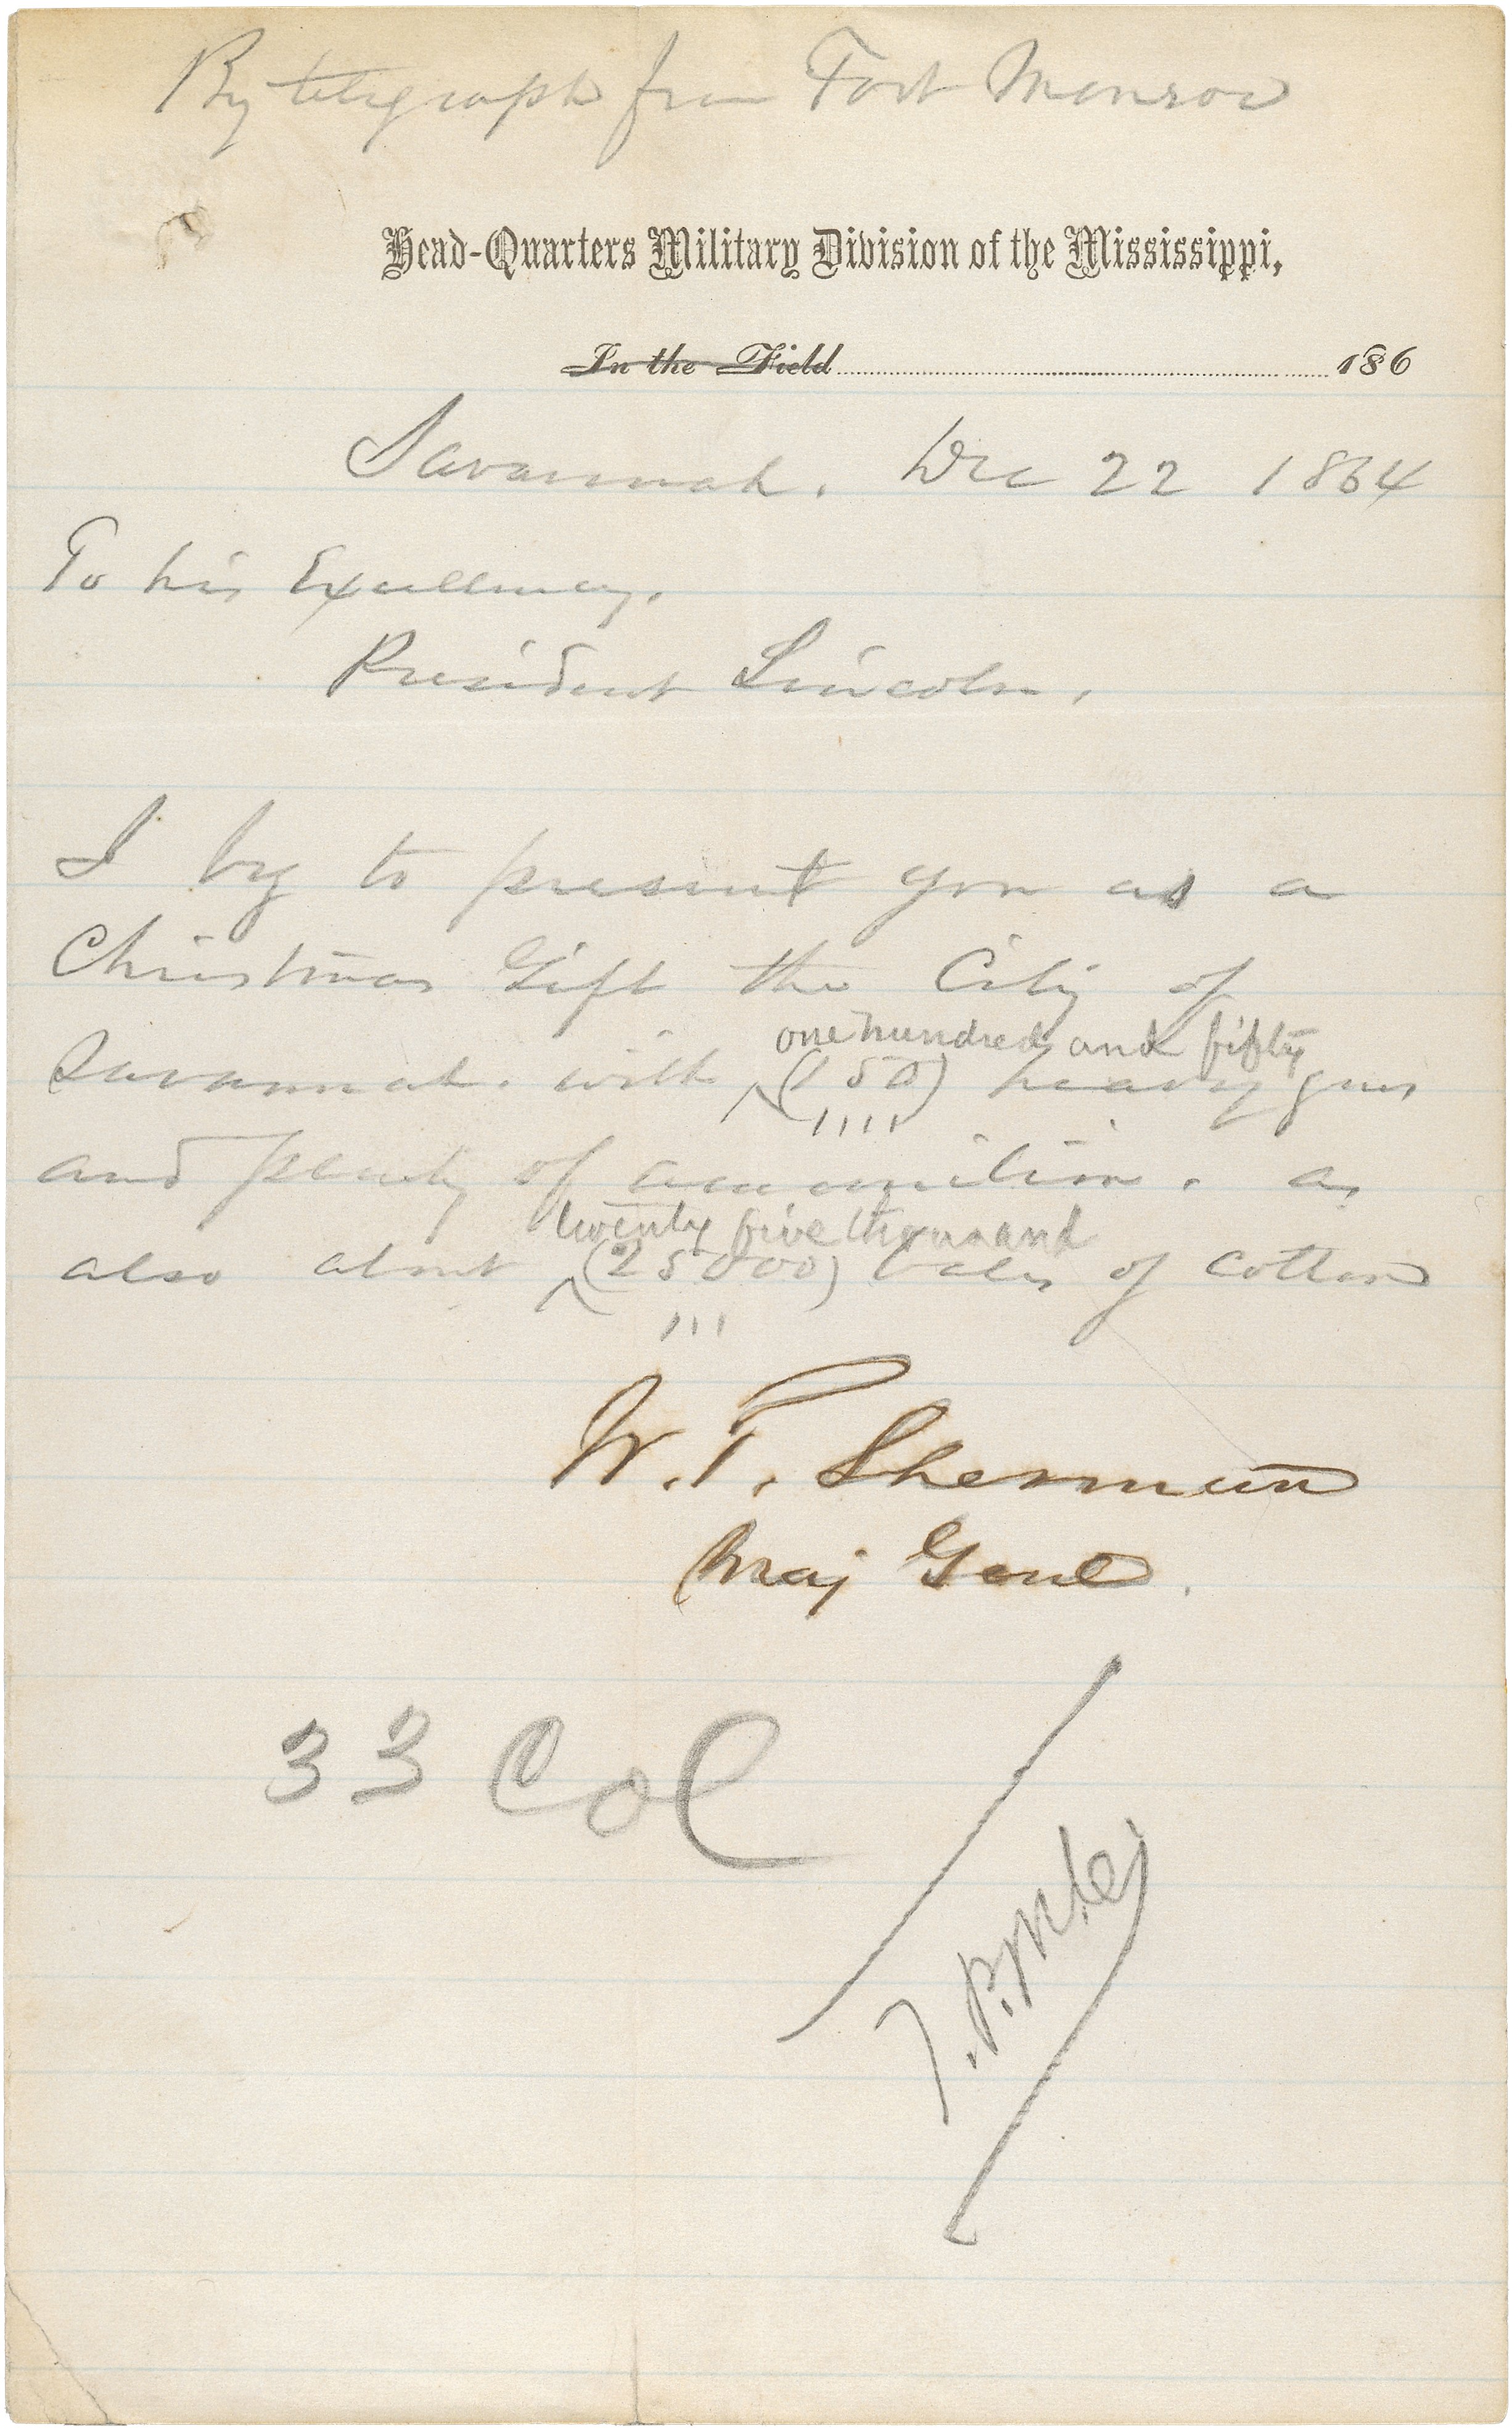 By telegraph from Fort Monroe
Head-Quarters Military Division of the Mississippi,
In the Field 186
Savannah. Dec 22 1864
To his Excellency.
President Lincoln,
I beg to present you as a
Christmas Gift the City of
one hundred and fifty
Savannah. with (150) heavy guns
and plenty of ammunition. as
twenty five thousand
also about (25000) bales of cotton
W.T. Sherman
Maj Genl.
33 Col